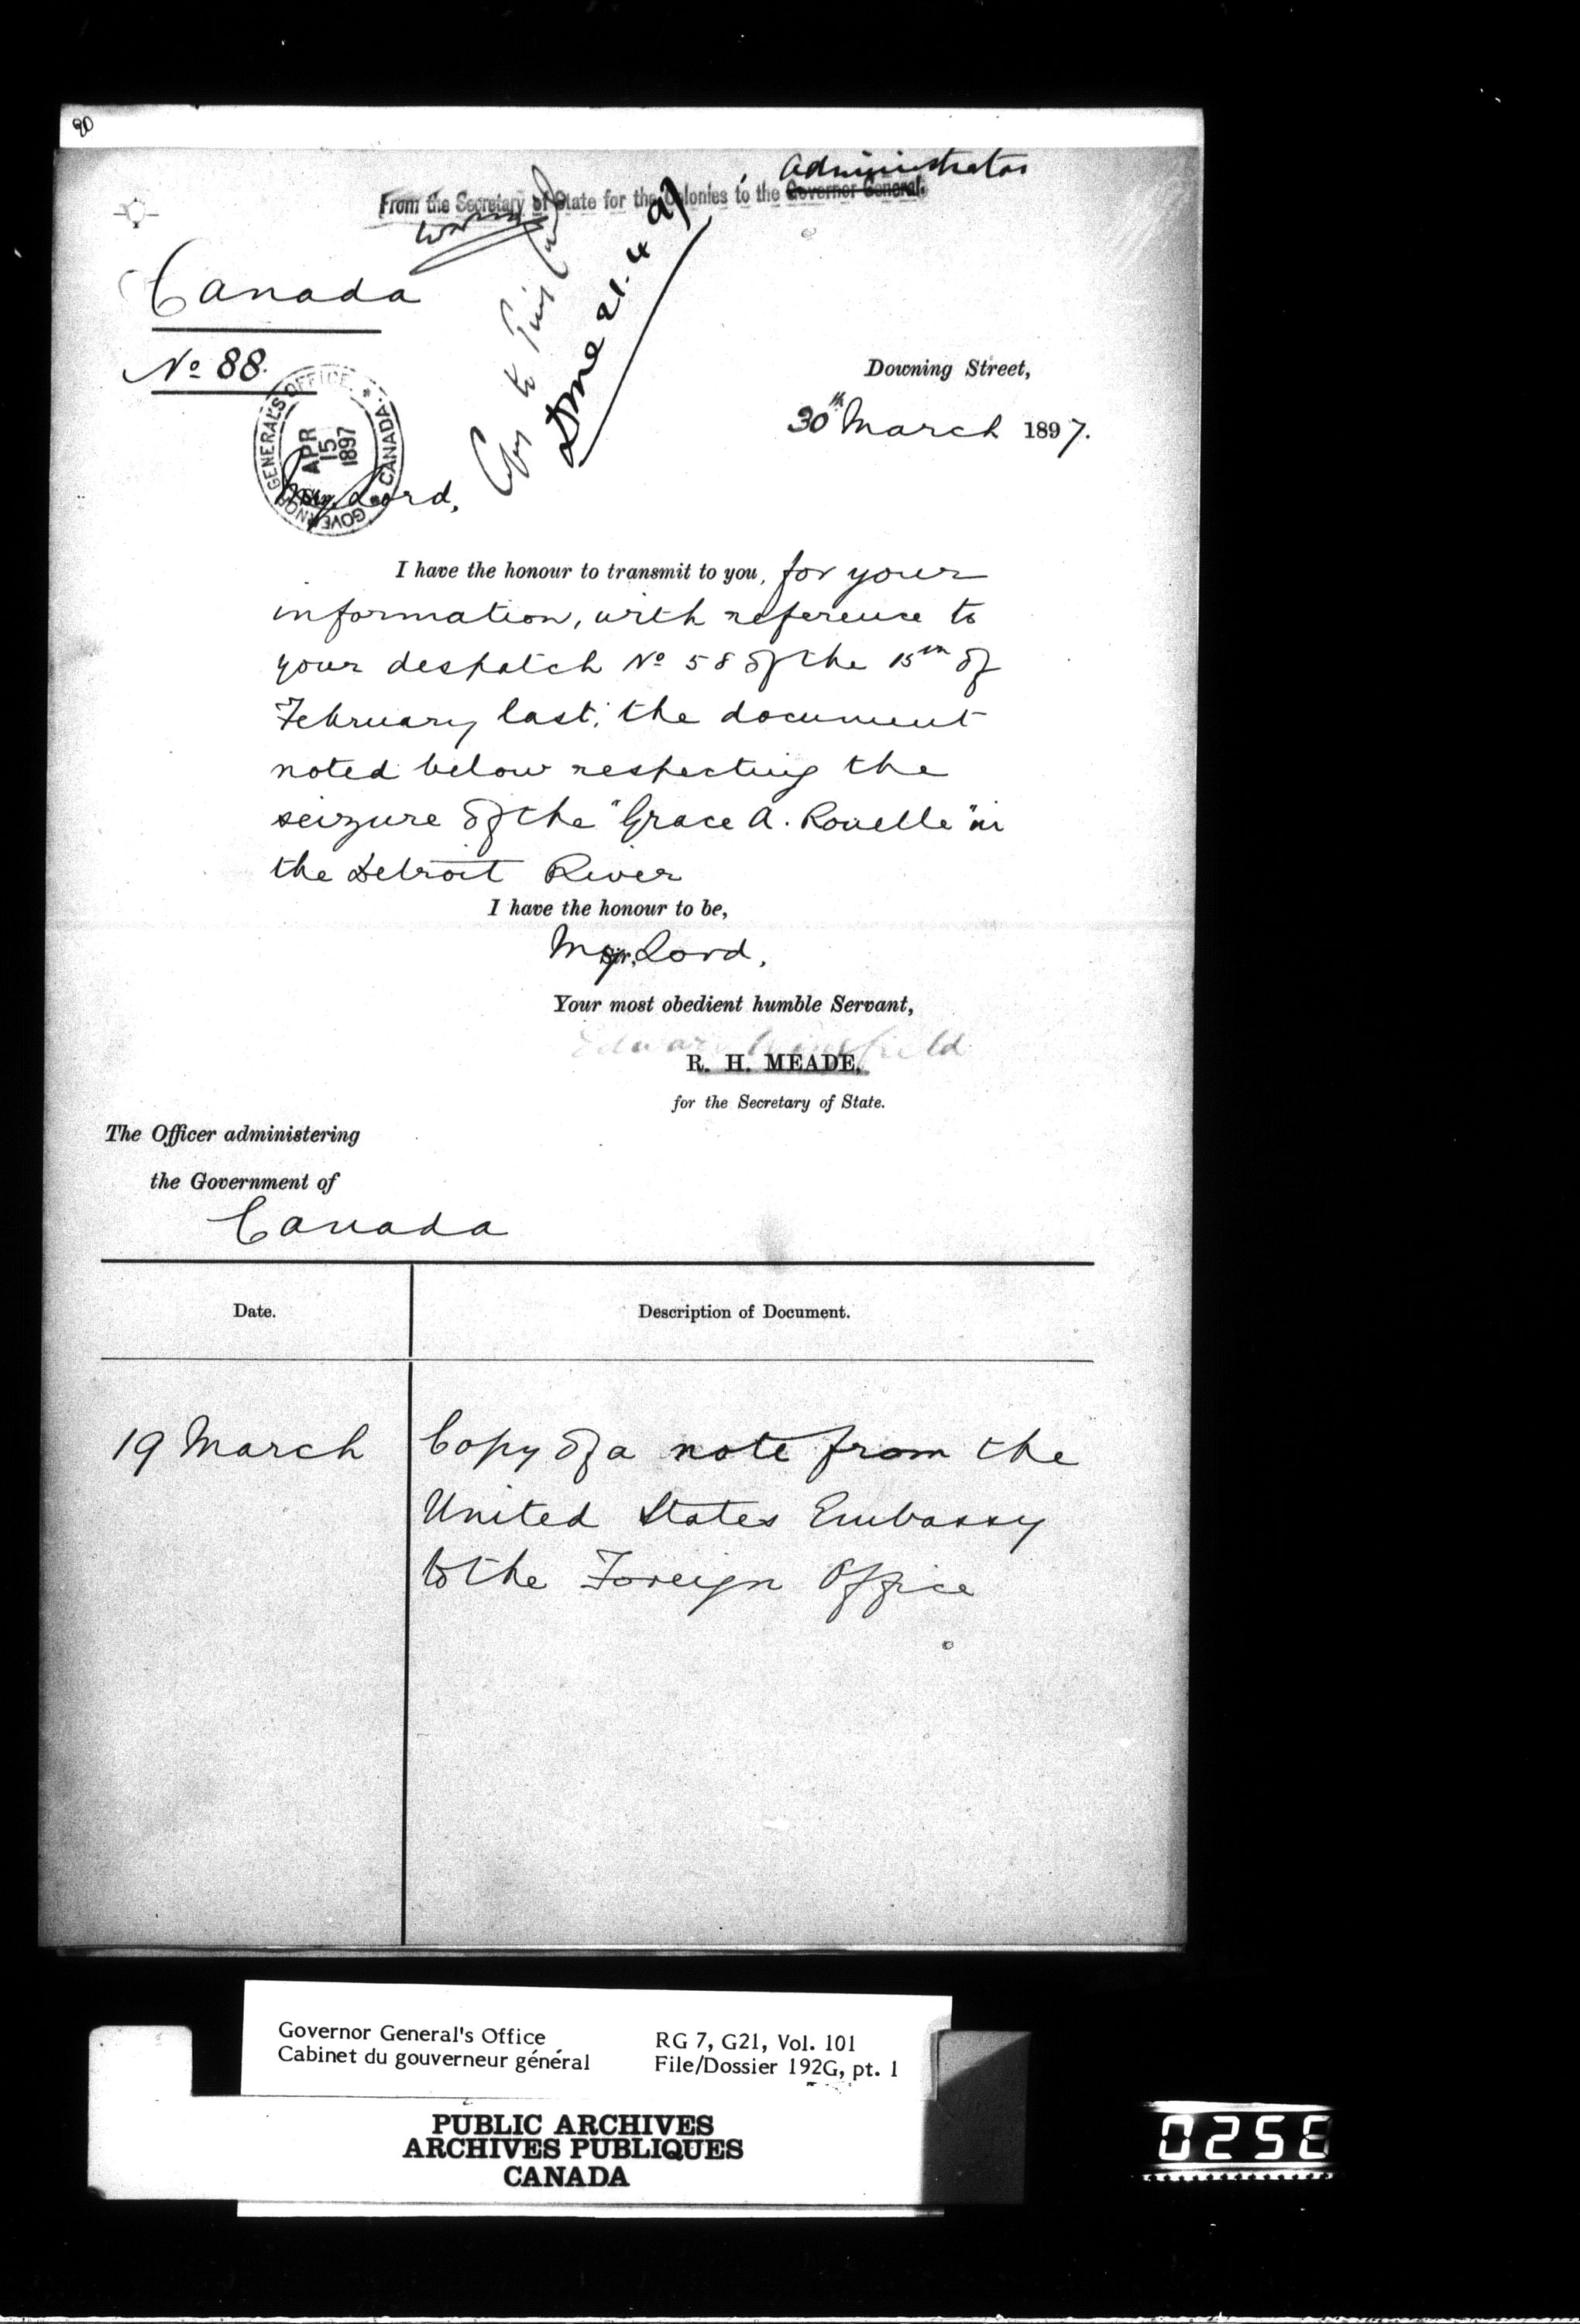 90
Administrator
From the Secretary of State for the Colonies to the Governor General.
Canada
No 88.
Copy to Privy
Done 21.4.97
GOVERNOR GENERAL'S OFFICE * CANADA *
APR
15
1897
Downing Street,
30th March 1897.
My Lord,
I have the honour to transmit to you, for your
information, with reference to
your despatch No 58 of the 15th of
February last, the document
noted below respecting the
seizure of the "Grace A. Rouelle" in
the Detroit River
I have the honour to be,
My Lord,
Your most obedient humble Servant,
Edward Wingfield
R. H. MEADE,
for the Secretary of State.
The Officer administering
the Government of
Canada
Date.	Description of Document.
19 March	Copy of a note from the
United States Embassy
to the Foreign Office
Governor General's Office	RG 7, G21, Vol. 101
Cabinet du gouverneur général	File/Dossier 192G, pt. 1
PUBLIC ARCHIVES
ARCHIVES PUBLIQUES
CANADA